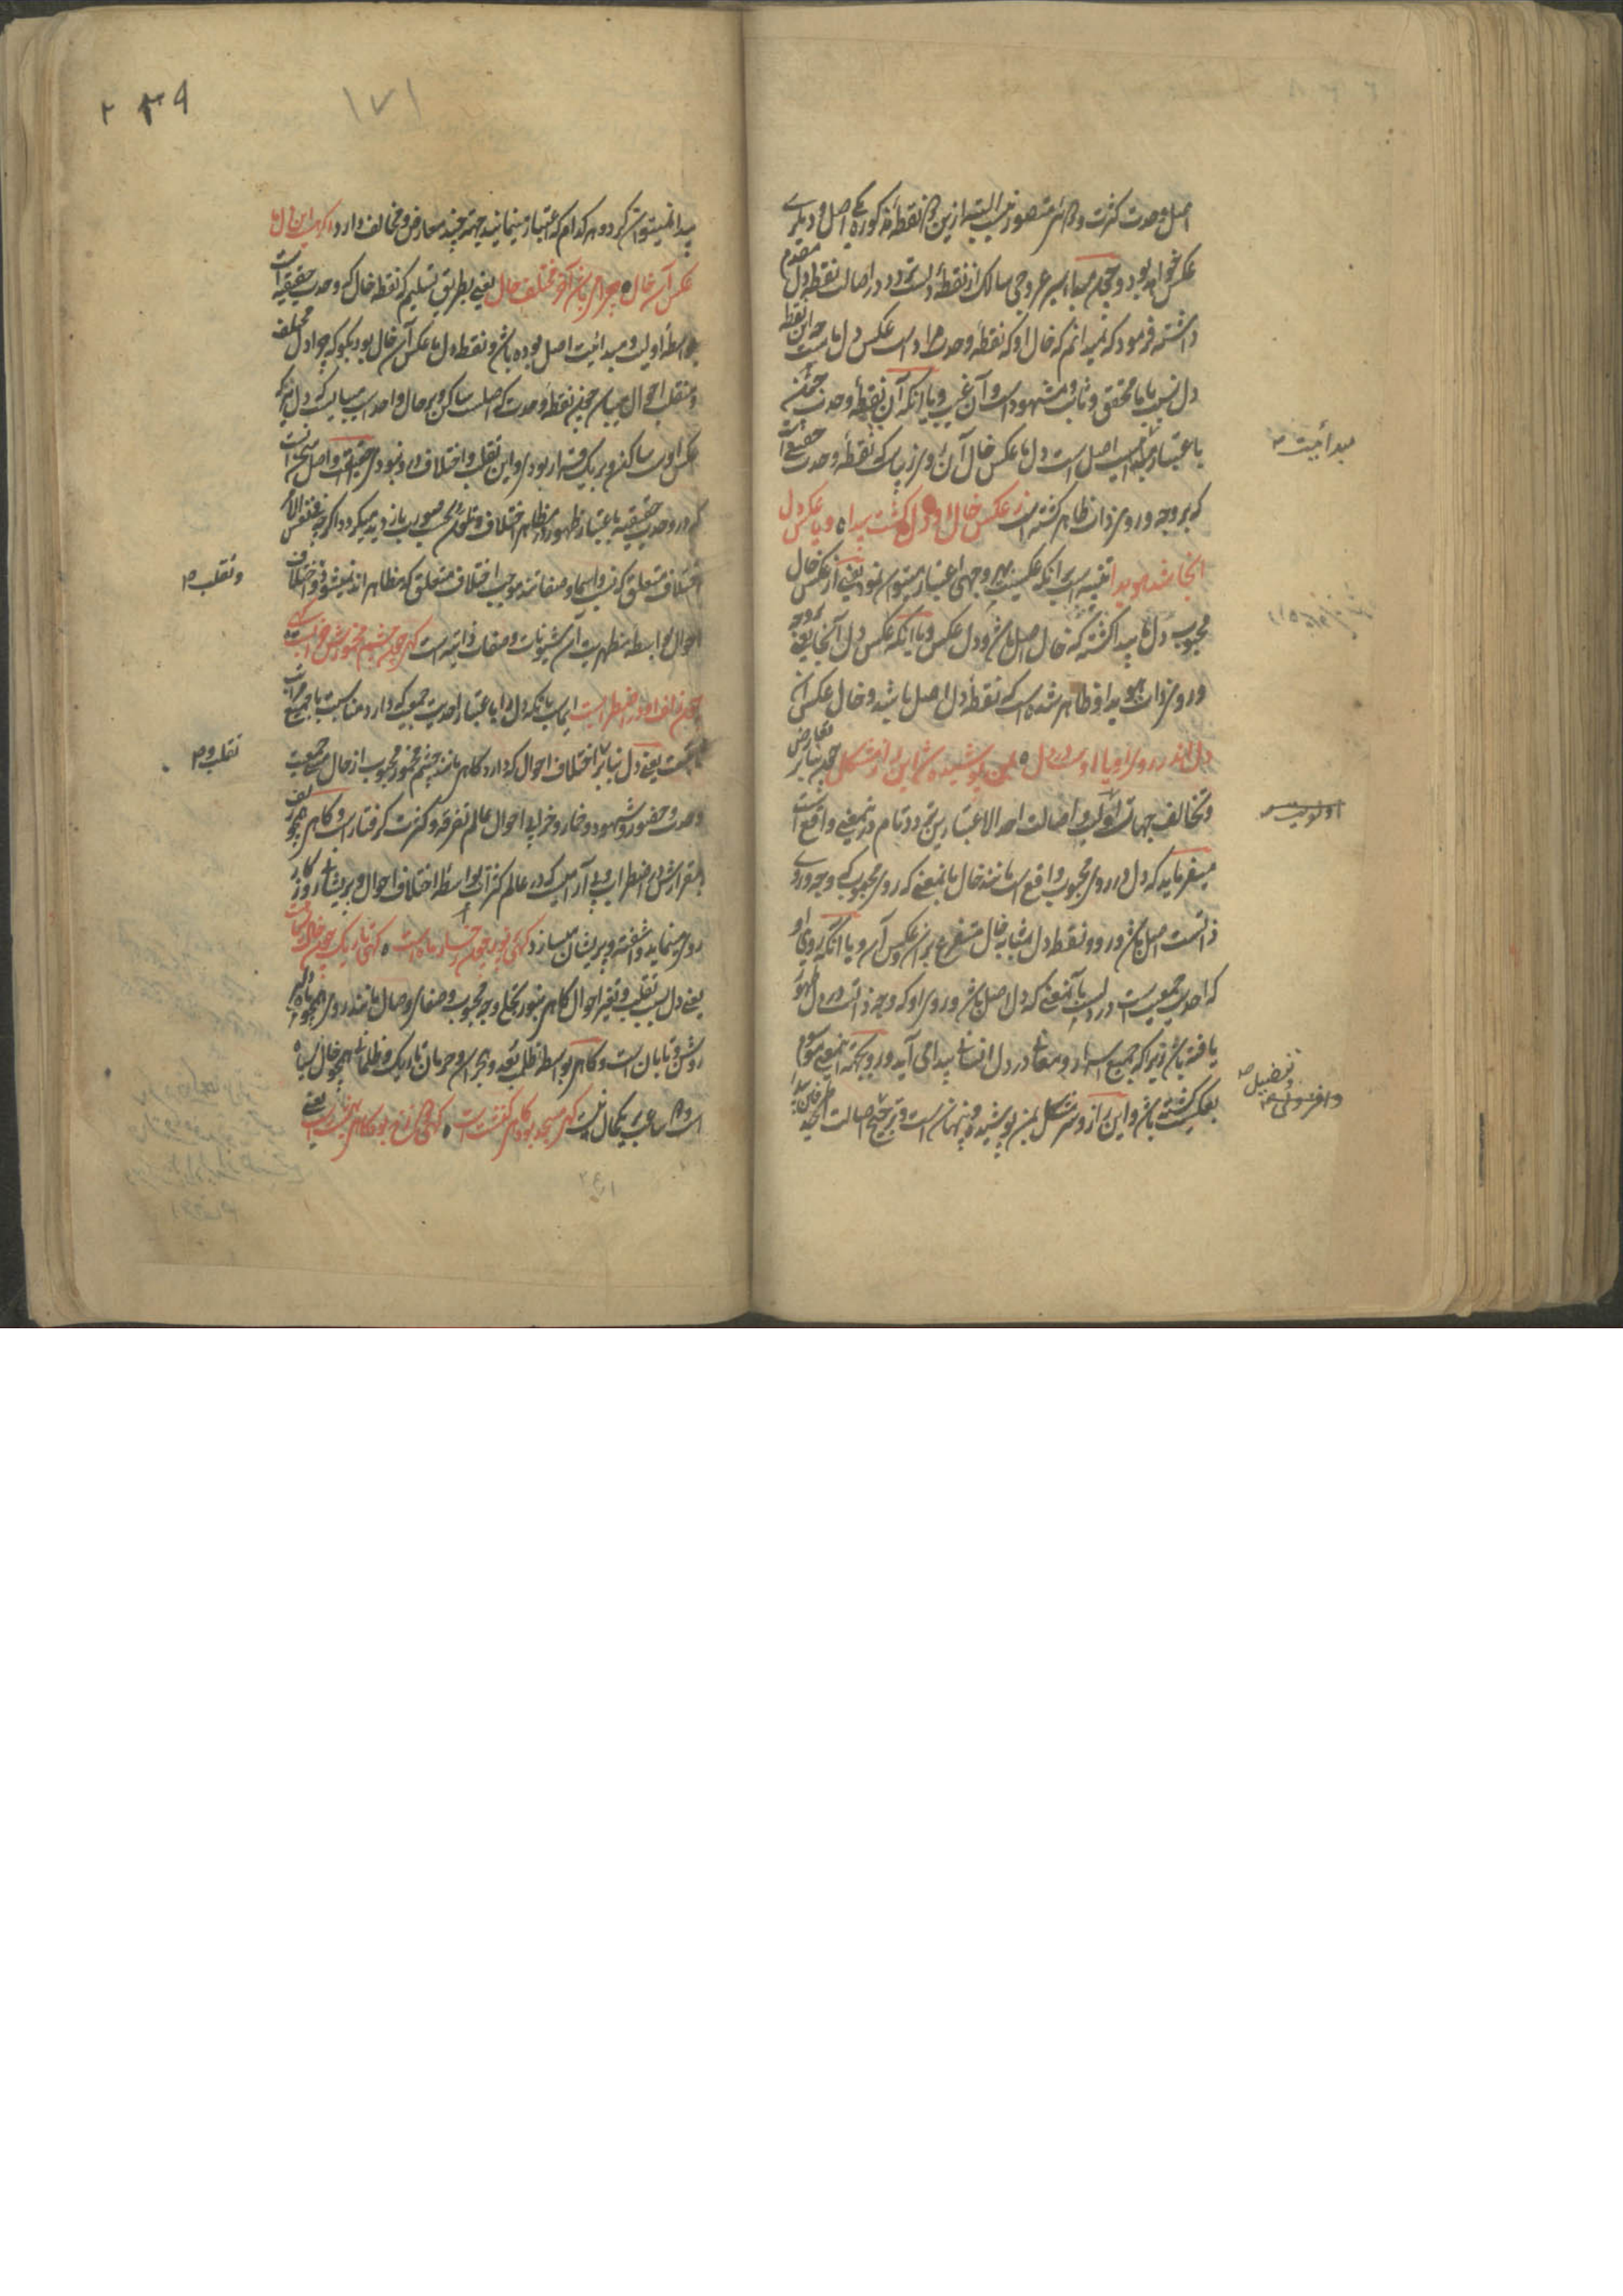 اصل وحدت کثرت و دایره متصور نیست البته ازین دو نقطه مذکوره یکی اصل و دیگری
عکس خواهد بود و چون مبداء سیر عروجی سالک از نقطه دلست تردد در اصالت نقطه دل مقدم
داشته فرمود که نمیدانم که خال او که نقطه وحدت مراد است عکس دل ماست چه این نقطه
دل نسبت با ما محقق و ثابت و مشهود است و آن غیب و یا آنکه آن نقطه وحدت
باعتبار اصل است دل ما عکس خال آن روی زیباست که نقطه وحدت حقیقی است
که بر وجه و روی ذات ظاهر گشته است ز عکس خال او دل گشت پیدا ه و یا عکس دل
آنجا شد هویدا تنبیه است برانکه عکسیت بهر وجهی اعتبار میتوان نمود یعنی از عکس خال
محبوب دل ما پیدا گشته که خال اصل باشد و دل عکس و یا آنکه عکس دل آنجا یعنی
در روی ذات هویدا و ظاهر شده است که نقطه دل اصل باشد و خال عکس آن
دل اندر روی او یا اوست در دل ه بمن پوشیده شد این راز مشکل چون بنابر تعارض
و تخالف جهات اولیت و اصالت احد الاعتبارین تردد تمام درین معنی واقع است
میفرماید که دل در روی محبوب واقع است مانند خال بانمعنی که روی محبوب که وجه و روی
ذاتست اصل باشد و رو و نقطه دل بمثابه خال متفرع بران عکس آن و یا آنکه روی او
که احدیت جمعیت است در دلست بآنمعنی که دل اصل باشد و روی او که وجه ذاتست در دل ظهور
یافته باشد زیرا که جمیع اسرار و معانی در دل انسانی پیدا می آید و رو بجهة اینمعنی موسوم
بعکسیت گشته باشد و این راز و سر مشکل بمن پوشیده و پنهان است و ترجیح اصالت احد طرفین
مبدأیت
اولویت
و تفضیل
و افزونی
۲۳۹
۱۷۱
پیدا نمیتوان کرد و هر کدام که اعتبار مینمایند جهة چند معارض و مخالف دارد اگر هست این دل ما
عکس آن خال ه چرا می باشد آخر مختلف حال یعنی بطریق تسلیم که نقطه خال که وحدت حقیقیه است
بواسطه اولیت و مبدائیت اصل بوده باشد و نقطه دل ما عکس آن خال بود بگو که چرا دل مختلف
و متقلب احوال میباشد چون نقطه وحدت که اصلست ساکن و بر حال واحد است میبایست که دل نیز که
عکس اوست ساکن و بر یک قرار بودی و این تقلب و اختلاف درو نبودی
که در وحدت حقیقیه باعتبار ظهور در مظاهر اختلاف و تلون بحسب صور باز دید میگردد اگر چه فی نفس الامر
اختلاف متعلق که نسب و اسما و صفاتند موجب اختلاف متعلق که مظاهر اند نمیشود و اختلاف
احوال بواسطه مظهریت آن شئونات و صفات ذاتیه است گهی چون چشم مخمورش خرابست گهی
چون زلف او در اضطرابست ایماست بانکه دل را باعتبار احدیت جمع که دارد مناسبت با جمیع مراتب
هست یعنی دل بنابر اختلاف احوال که دارد گاهی مانند چشم مخمور محبوب از حال مستی جمعیت
وحدت و حضور و شهود و خمار و خرابی احوال عالم تفرقه و کثرت گرفتار است و گاهی همچو زلف
بیقرارش در اضطراب و بی آرامیست که در عالم کثرات بواسطه اختلاف احوال و پریشانی روزگار
روی مینماید و آشفته و پریشان میسازد گهی روشن چون رخسار ماهست ه گهی تاریک چون خال سیاهست
یعنی دل بسبب تقلب و تغیر احوال گاهی بنور تجلی وجه محبوب و صفای وصال مانند روی همچو ماه دلبر
روشن و تابان است و گاهی بواسطه ظلمت بعد و هجران و حرمان تاریک و ظلمانی همچو خال سیاه
است و بر یکحال نیست گهی مسجد بود گاهی کنشت است ه گهی دوزخ بود گاهی بهشت است یعنی
و تقلب
تقلب و